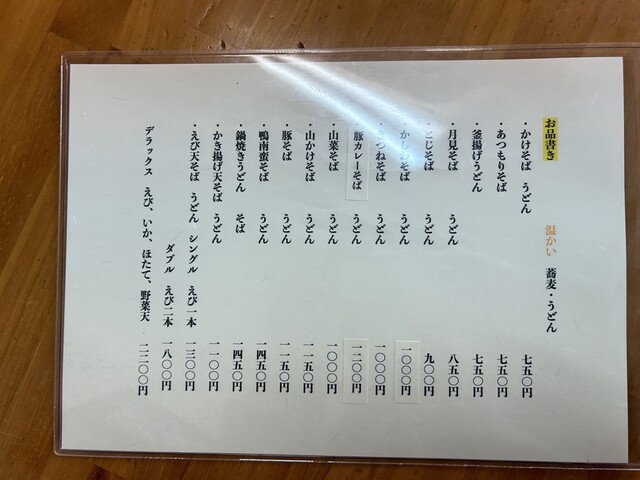 お品書き 温かい 蕎麦・うどん
・かけそば うどん 七五〇円
・あつもりそば 七五〇円
・釜揚げうどん 七五〇円
・月見そば うどん 八五〇円
・とじそば うどん 九〇〇円
・かしわそば うどん 一〇〇〇円
・きつねそば うどん 一〇〇〇円
・豚カレーそば うどん 一二〇〇円
・山菜そば うどん 一〇〇〇円
・山かけそば うどん 一一五〇円
・豚そば うどん 一一五〇円
・鴨南蛮そば うどん 一四五〇円
・鍋焼きうどん そば 一四五〇円
・かき揚げ天そば うどん 一一〇〇円
・えび天そば うどん シングル えび一本 一三〇〇円
ダブル えび二本 一八〇〇円
デラックス えび、いか、ほたて、野菜天 二二〇〇円